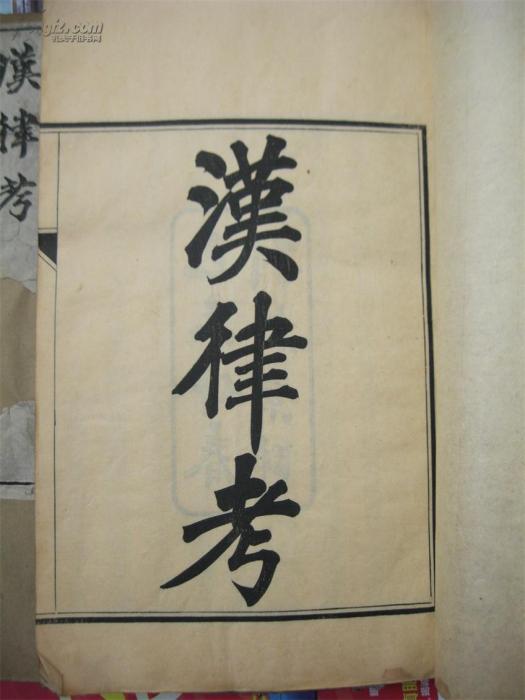 漢律考
漢律考
孔夫子旧书网